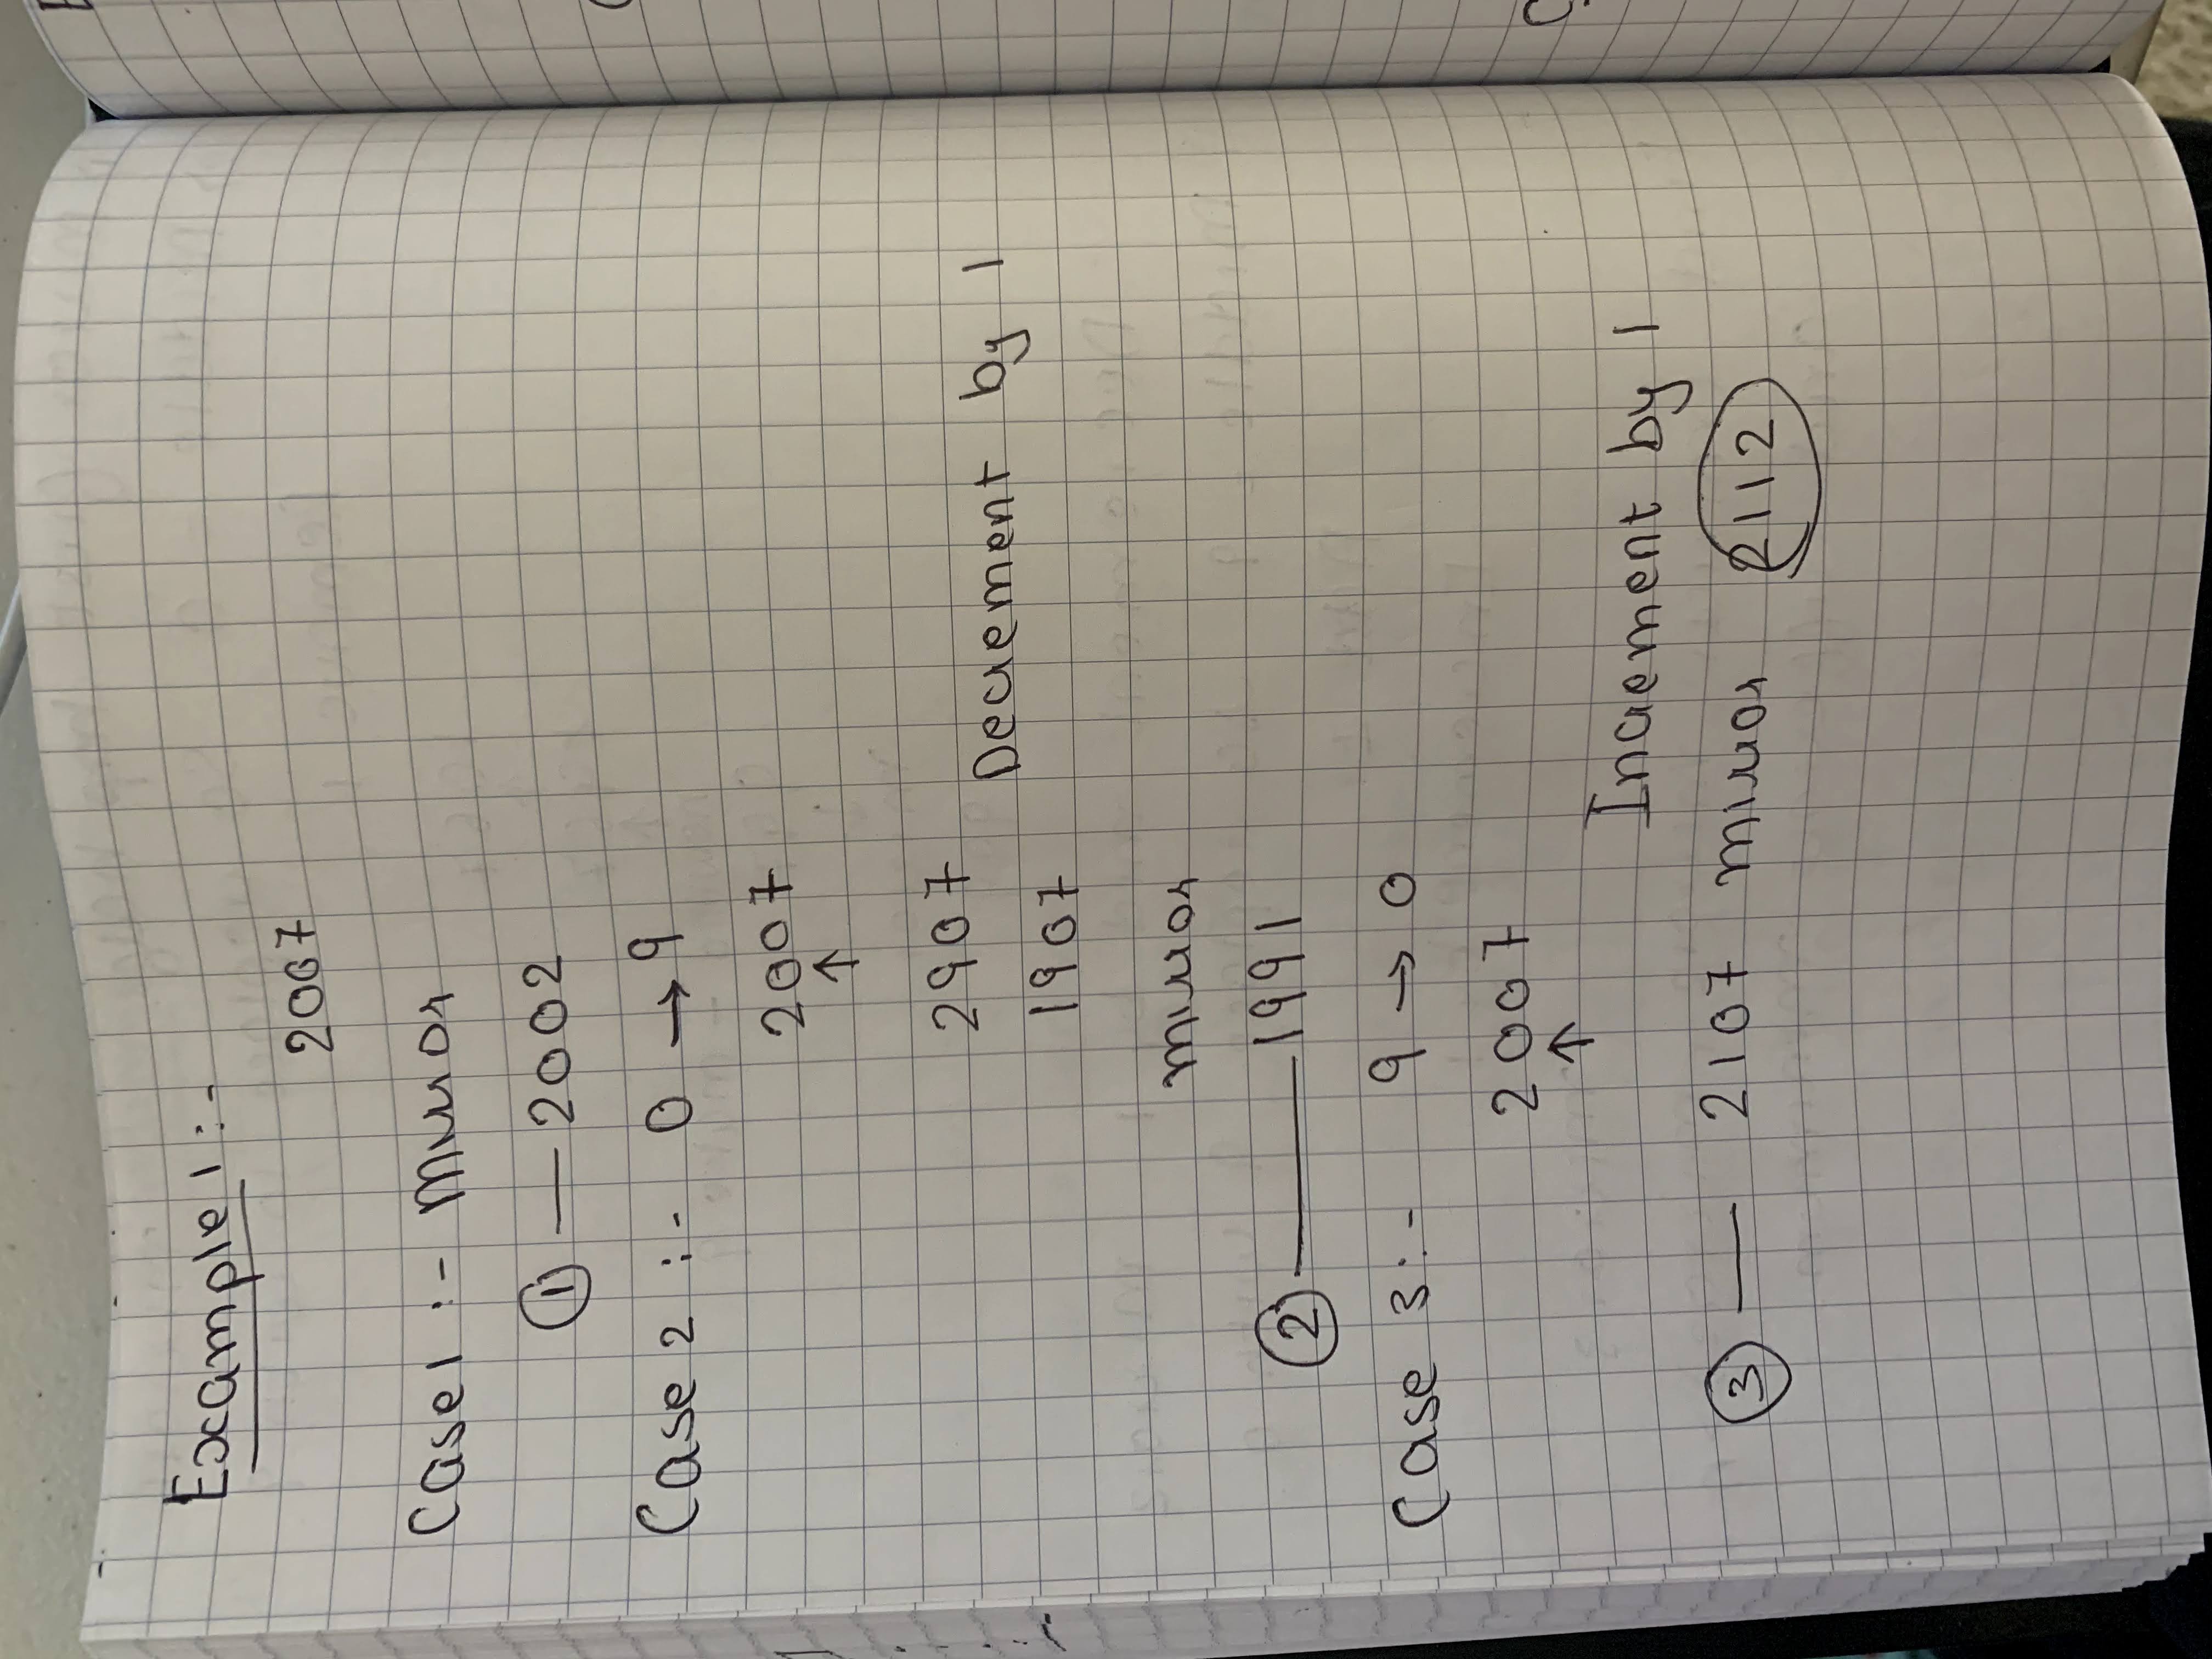 Example 1 :-
2007
Case 1 :- Mirror
① — 2002
Case 2 :- 0 → 9
2007
↑
2907
Decrement by 1
1907
mirror
② — 1991
Case 3 :- 9 → 0
2007
↑
Increment by 1
③ — 2107 mirror 2112